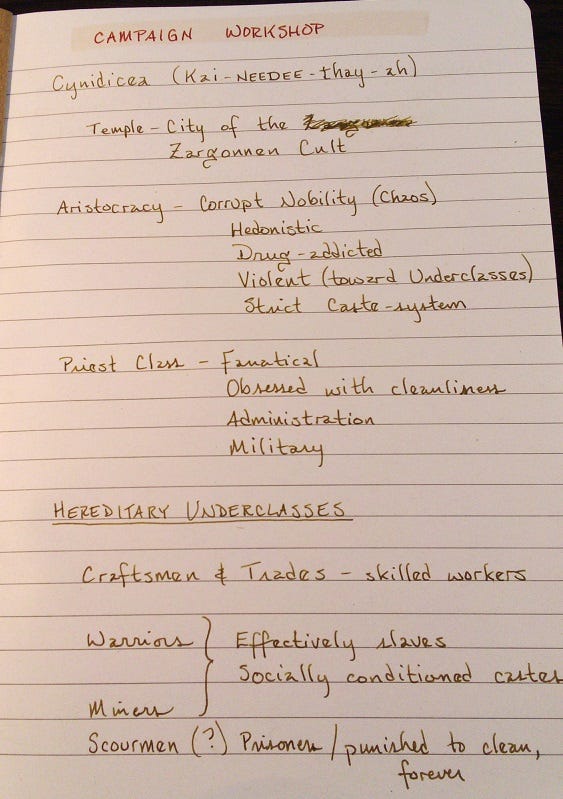 CAMPAIGN WORKSHOP
Cynidicea (Kai-NEEDEE-thay-ah)
Temple-City of the
Zargonnen Cult
Aristocracy - Corrupt Nobility (Chaos)
Hedonistic
Drug-addicted
Violent (toward Underclasses)
Strict Caste-system
Priest Class - Fanatical
Obsessed with cleanliness
Administration
Military
HEREDITARY UNDERCLASSES
Craftsmen & Trades - skilled workers
Warriors } Effectively slaves
Socially conditioned castes
Miners
Scourmen (?) Prisoners/punished to clean,
forever